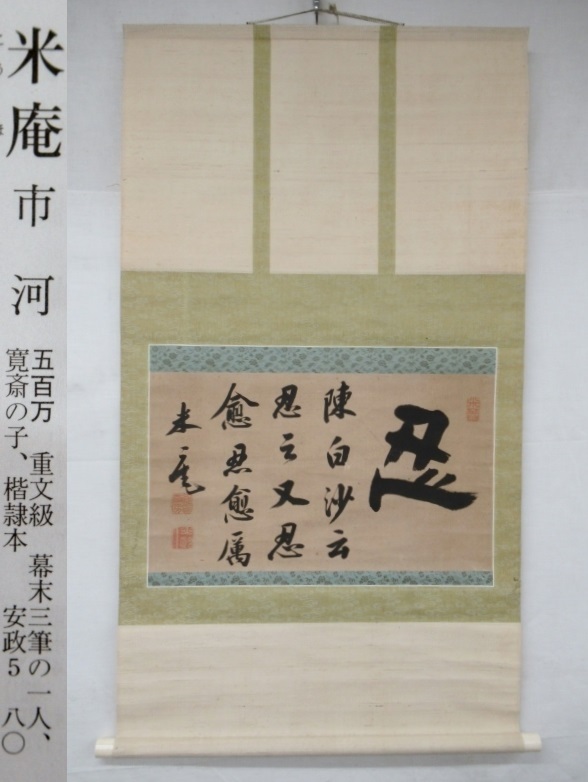 米庵 市河
五百万 重文級 幕末三筆の一人、
寛斎の子、楷隷本 安政5 八〇
忍
陳白沙云
忍之又忍
愈忍愈厲
米庵